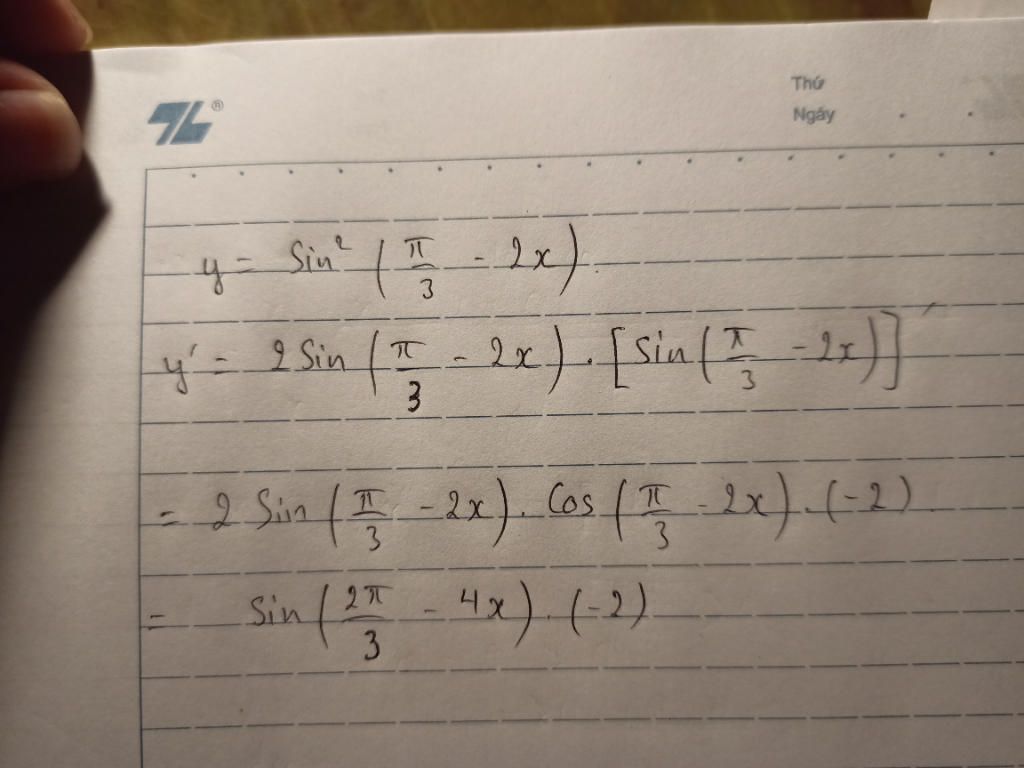 TL®
Thứ
Ngày . .
y = Sin² (π/3 - 2x).
y' = 2 Sin (π/3 - 2x) . [Sin (π/3 - 2x)]'
= 2 Sin (π/3 - 2x) . Cos (π/3 - 2x) . (-2).
= Sin (2π/3 - 4x) . (-2)